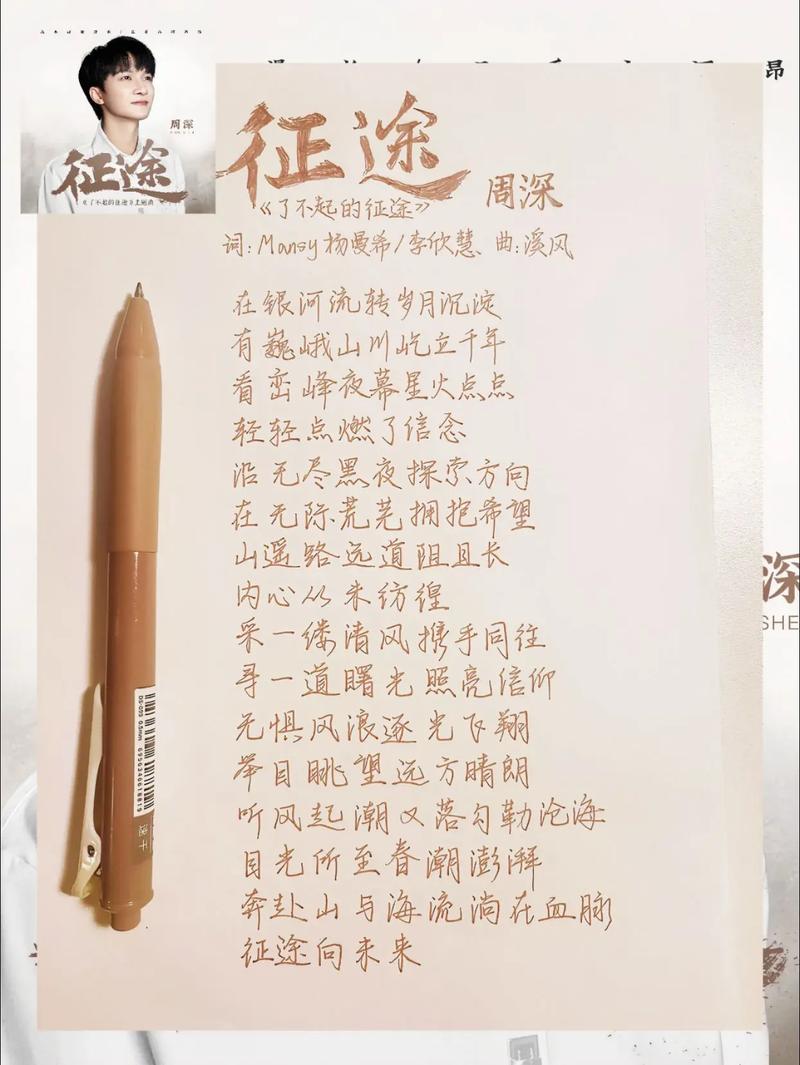 周深
征途
《了不起的征途》主题曲
昂
征途
周深
《了不起的征途》
词:Mansy杨曼希/李欣慧 曲:溪风
在银河流转岁月沉淀
有巍峨山川屹立千年
看峦峰夜幕星火点点
轻轻点燃了信念
沿无尽黑夜探索方向
在无际荒芜拥抱希望
山遥路远道阻且长
内心从未彷徨
采一缕清风携手同往
寻一道曙光照亮信仰
无惧风浪逐光飞翔
举目眺望远方晴朗
听风起潮又落勾勒沧海
目光所至春潮澎湃
奔赴山与海流淌在血脉
征途向未来
深
SHE
0.5mm
6956246618819
速干